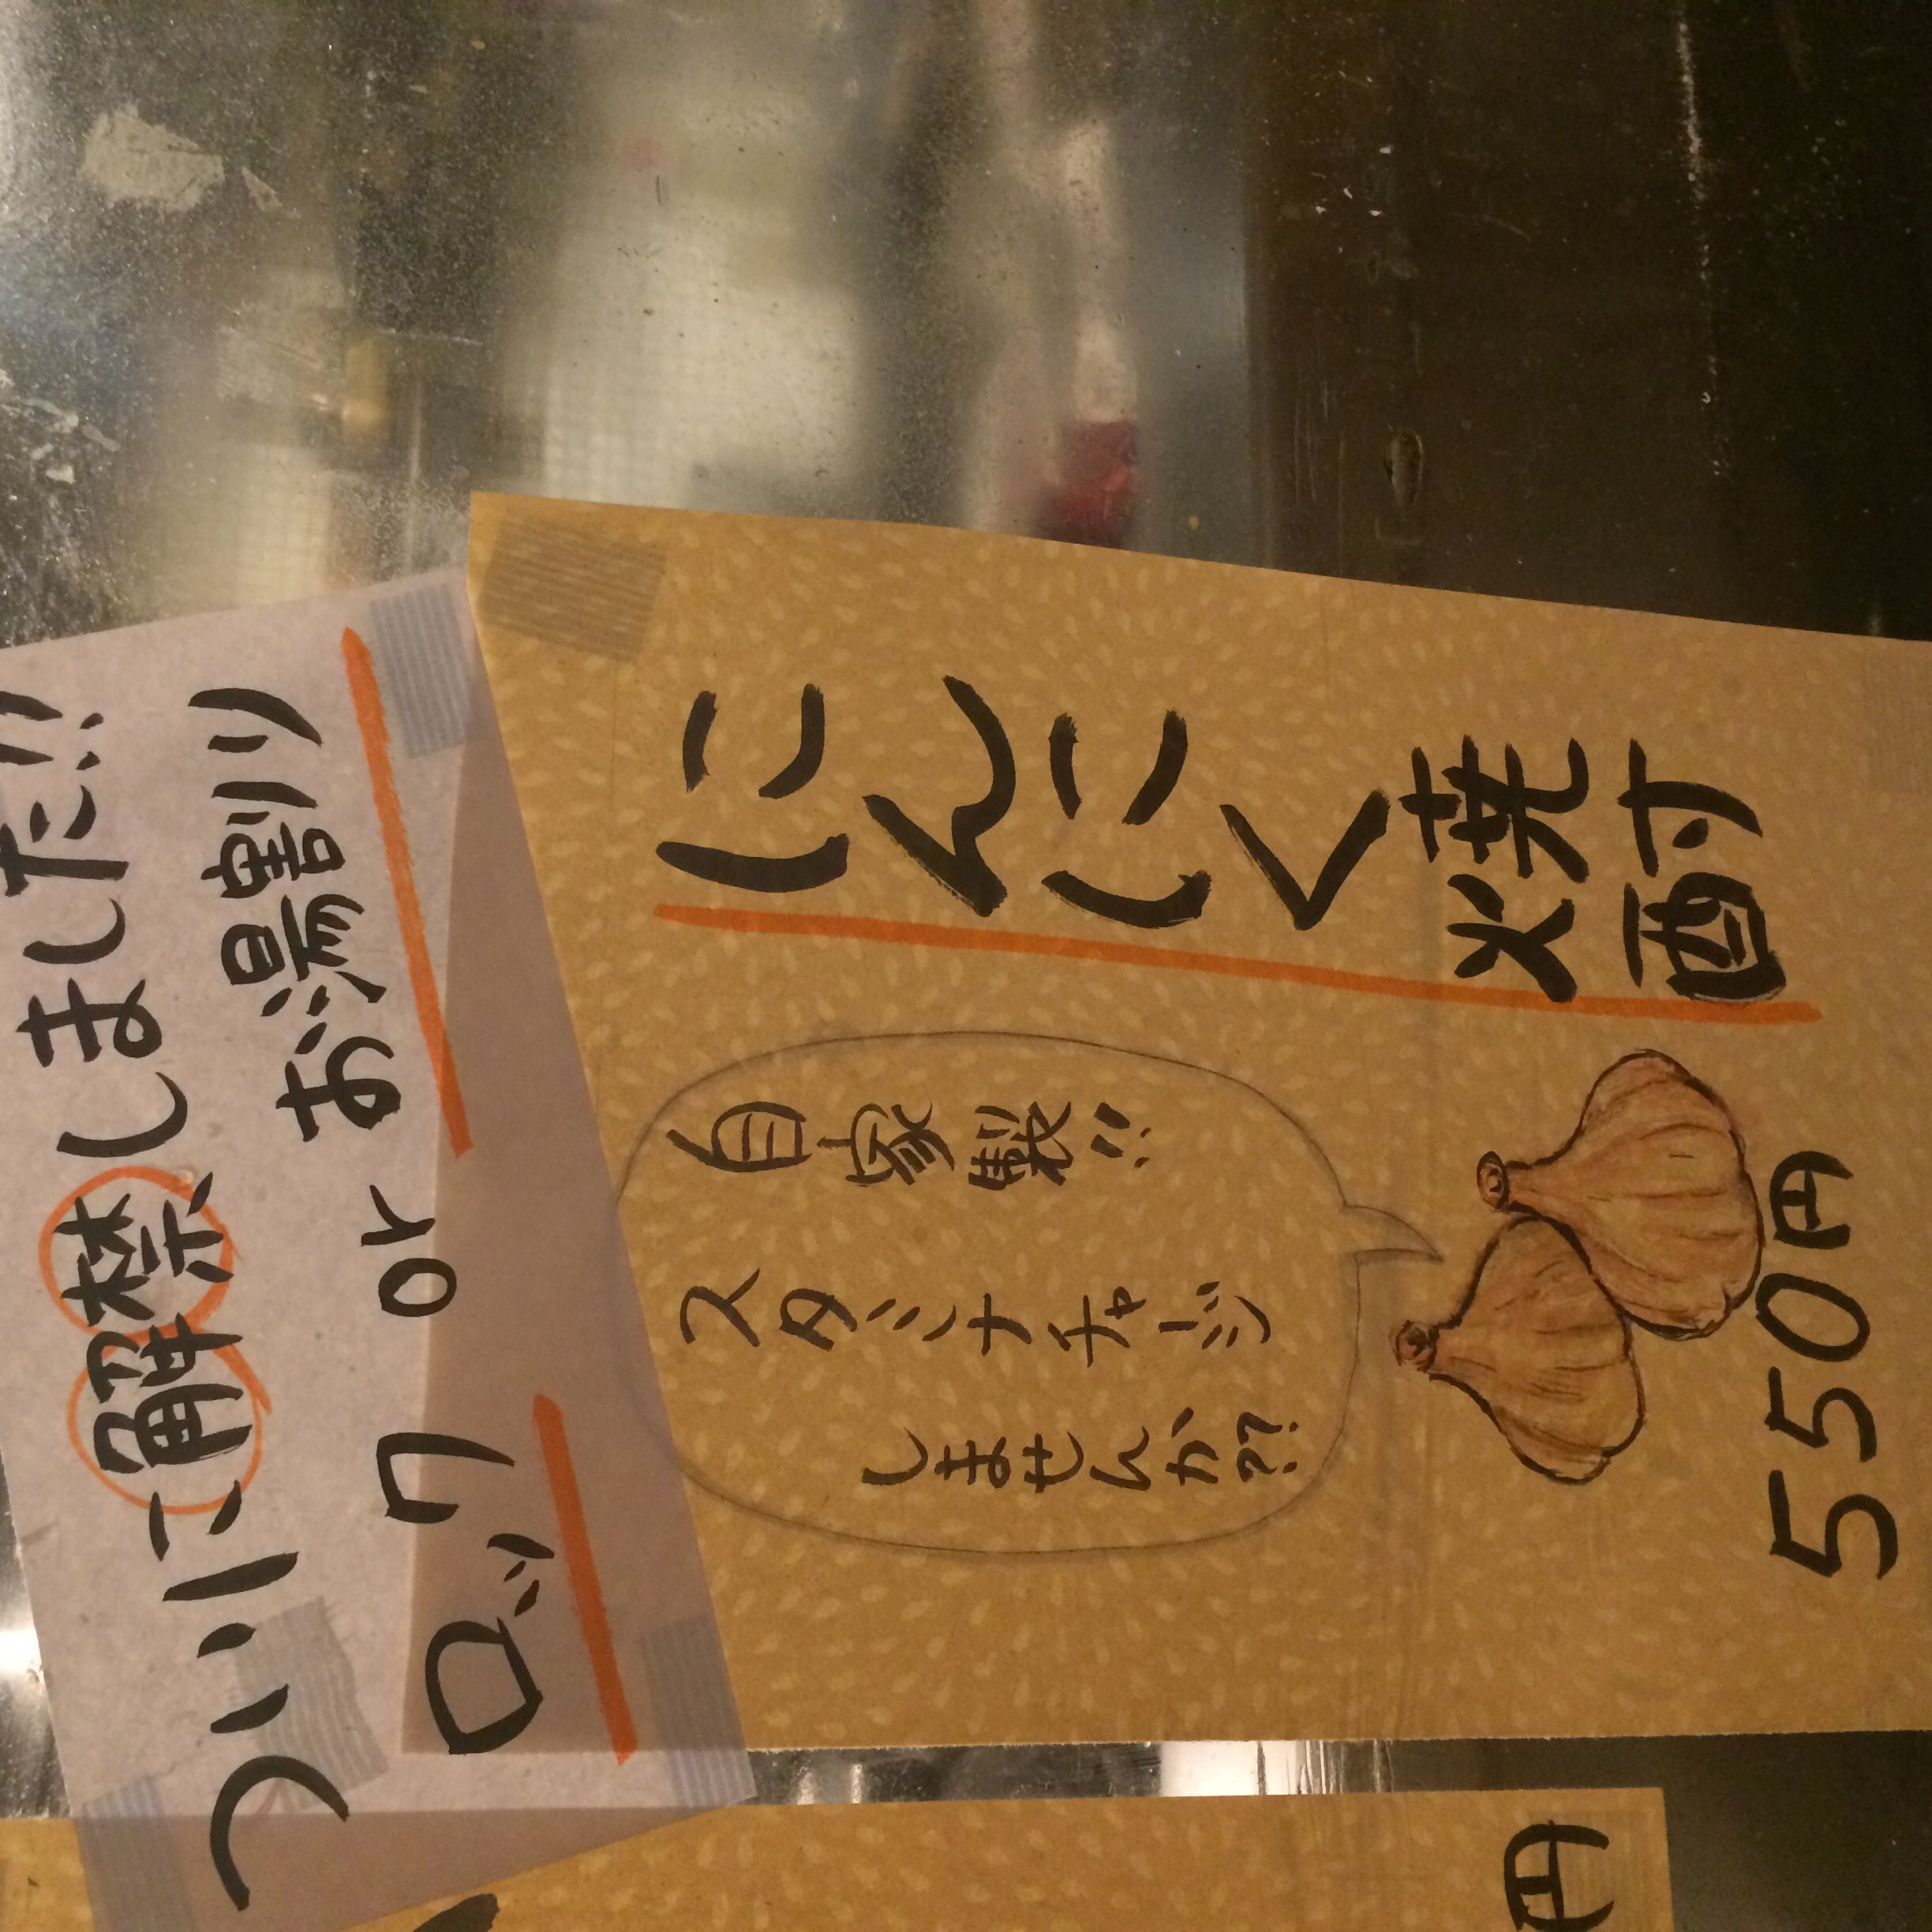 ついに解禁しました!!
ロック or お湯割り
にんにく焼酎
自家製!!
スタミナチャージ
しませんか??
550円
円